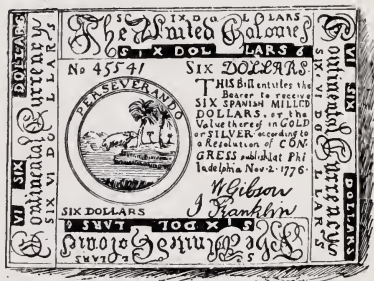 SIX DOLLARS
The United Colonies
SIX DOLLARS 6
No 45541
SIX DOLLARS.
THIS Bill entitles the
Bearer to receive
SIX SPANISH MILLED
DOLLARS, or the
Value thereof in GOLD
or SILVER according to
a Resolution of CON-
GRESS publish'd at Phi
ladelphia Nov. 2. 1776.
PERSEVERANDO
W Gibson
J Franklin
SIX DOLLARS
SIX DOLLARS 6
The United Colonies
SIX DOLLARS
VI SIX DOLLARS
Continental Currency
SIX VI DOLLARS
VI SIX DOLLARS
Continental Currency
SIX, VI DOLLARS